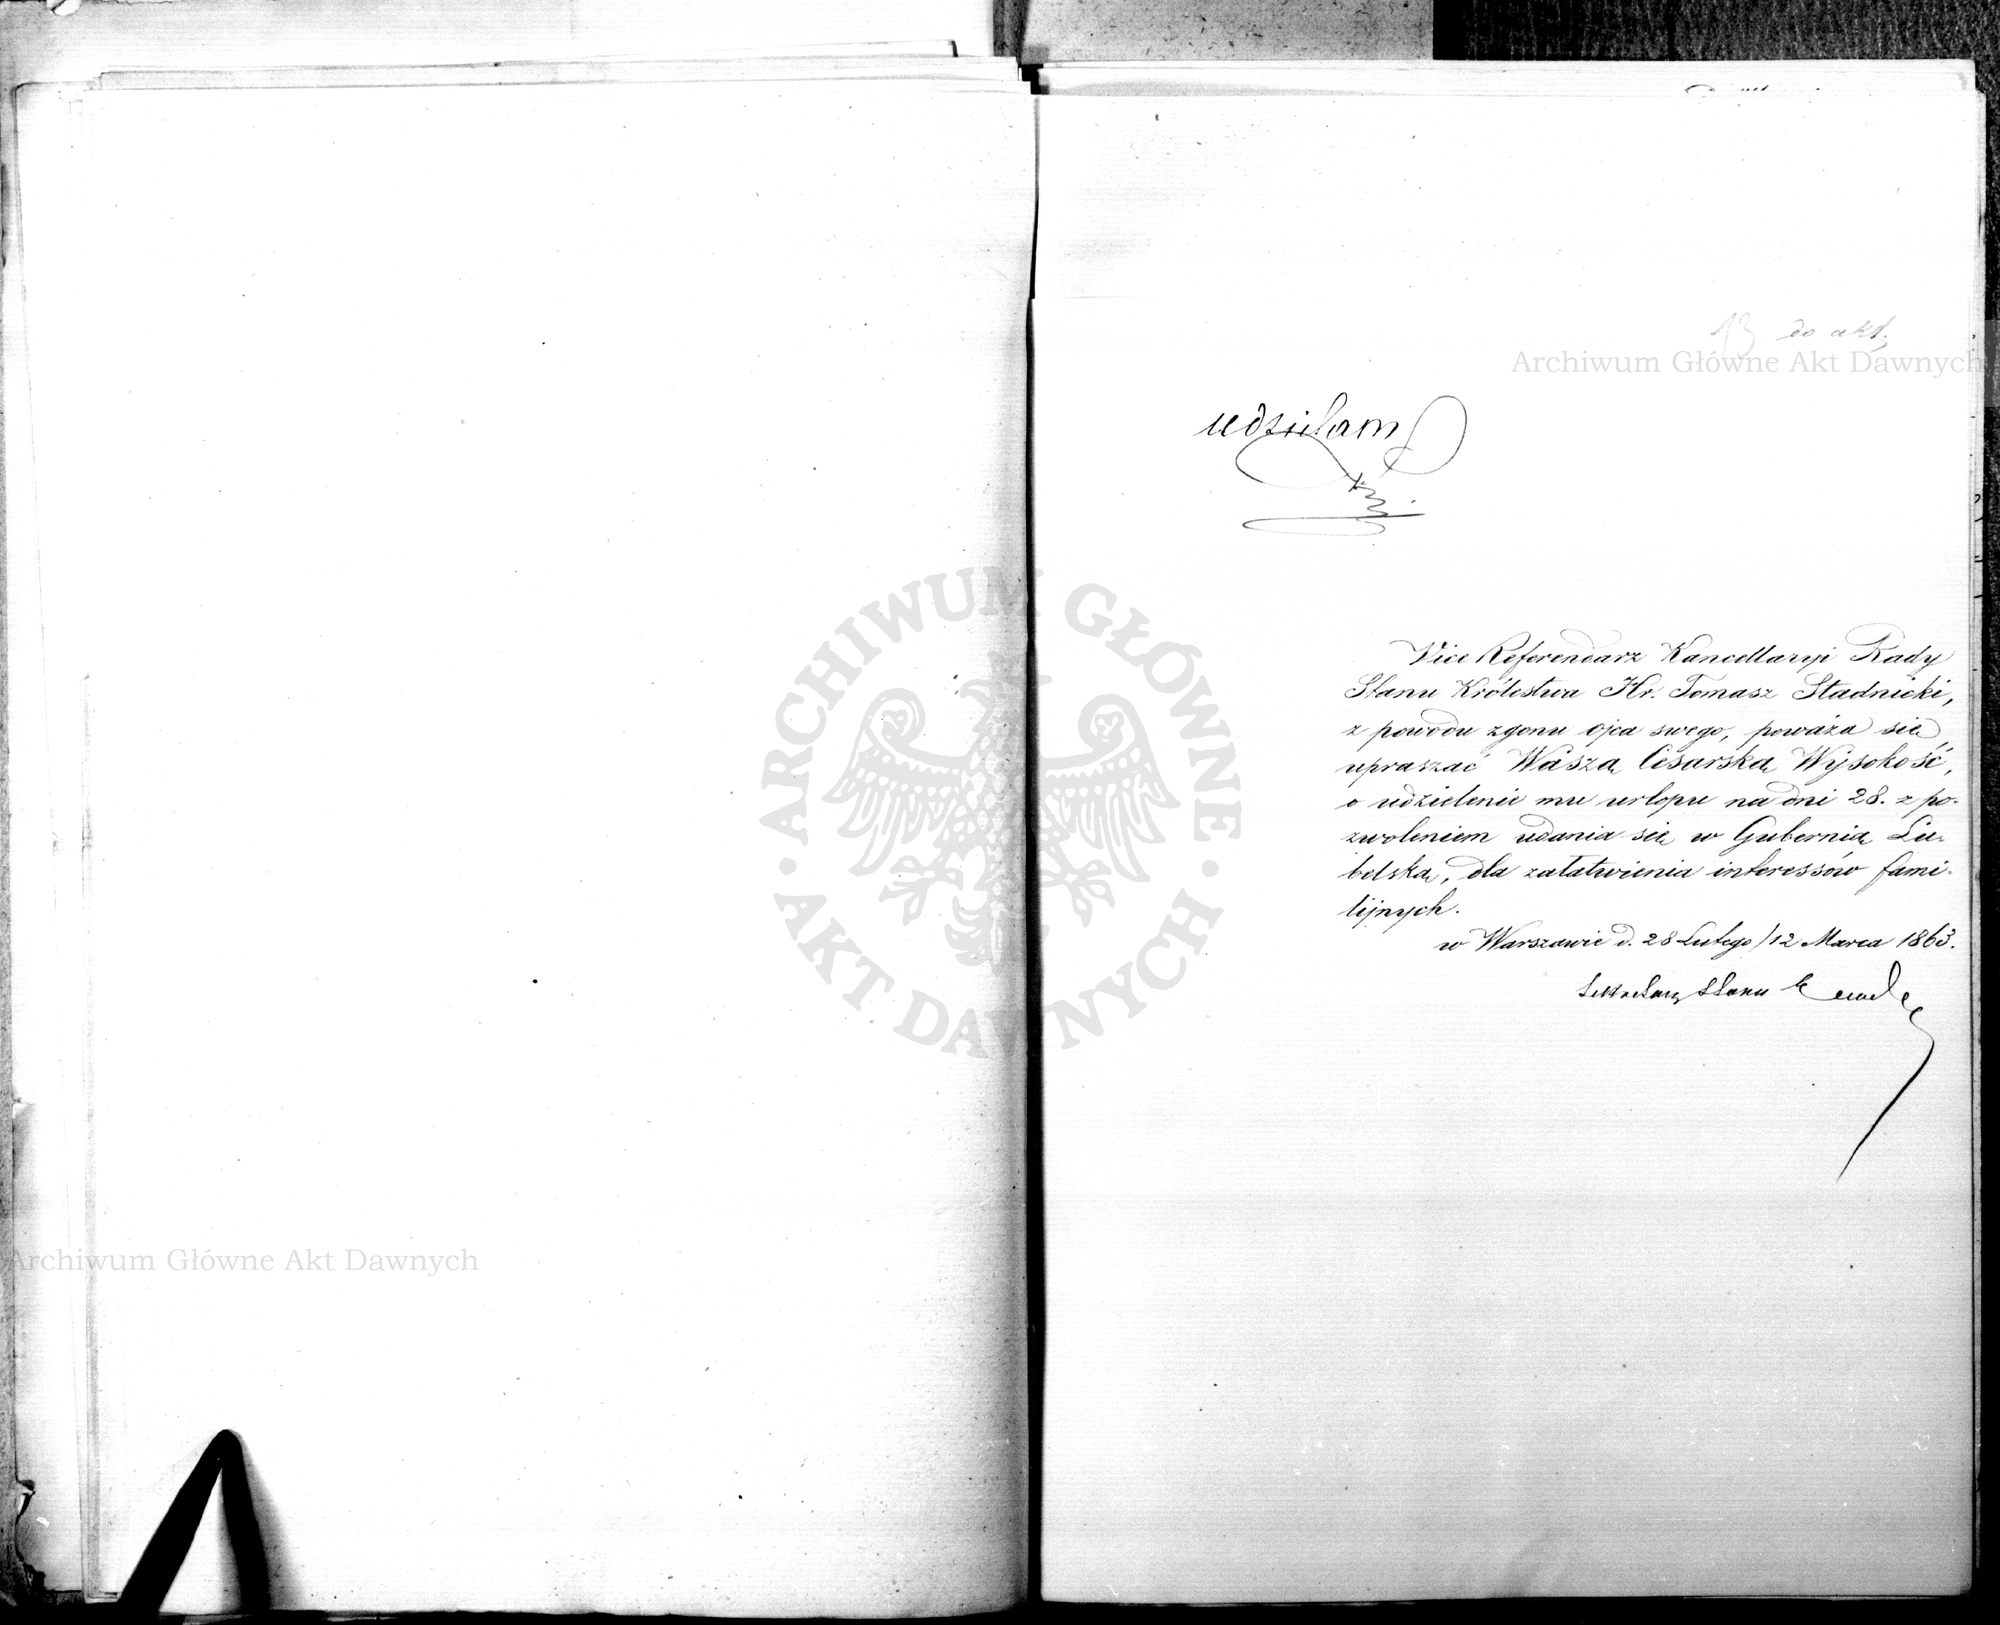 13 do akt.
Archiwum Główne Akt Dawnych
udzielam
ARCHIWUM GŁÓWNE
AKT DAWNYCH
Vice Referendarz Kancellaryi Rady
Stanu Królestwa Hr. Tomasz Stadnicki,
z powodu zgonu ojca swego, poważa się
upraszać Waszą Cesarską Wysokość,
o udzielenie mu urlopu na dni 28. z po-
zwoleniem udania się w Gubernią Lu-
belską, dla załatwienia interessów fami-
lijnych.
w Warszawie d. 28 Lutego/12 Marca 1863.
Sekretarz Stanu
Archiwum Główne Akt Dawnych